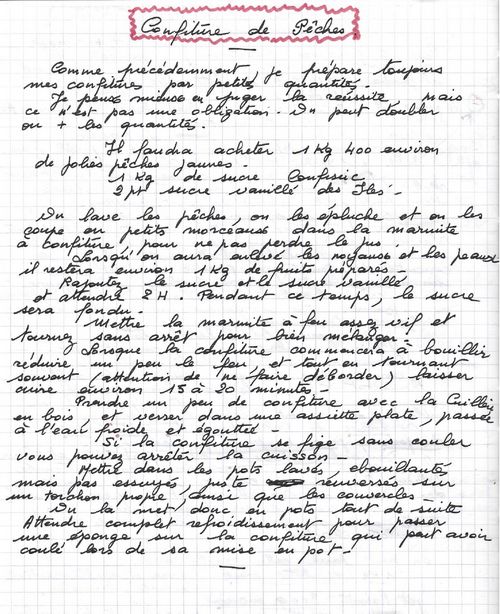 Confiture de Pêches
Comme précédemment, je prépare toujours
mes confitures par petites quantités.
Je peux mieux en juger la réussite mais
ce n'est pas une obligation. On peut doubler
ou + les quantités.
Il faudra acheter 1 Kg 400 environ
de jolies pêches jaunes.
1 Kg de sucre Confisuc
2 pt sucre vanillé des Iles.
On lave les pêches, on les épluche et on les
coupe en petits morceaux dans la marmite
à confiture, pour ne pas perdre le jus.
Lorsqu'on aura enlevé les noyaux et les peaux
il restera environ 1 Kg de fruits préparés -
Rajoutez le sucre et le sucre vanillé
et attendre 2 H. Pendant ce temps, le sucre
sera fondu -
Mettre la marmite à feu assez vif et
tournez sans arrêt pour bien mélanger -
Lorsque la confiture commencera à bouillir
réduire un peu le feu et tout en tournant
souvent (attention de ne faire déborder) laisser
cuire environ 15 à 20 minutes -
Prendre un peu de confiture avec la Cuillère
en bois, et verser dans une assiette plate, passée
à l'eau froide et égouttée -
Si la confiture se fige sans couler
vous pouvez arrêter la cuisson -
Mettre dans les pots lavés, ébouillantés
mais pas essuyés, juste renversés sur
un torchon propre, ainsi que les couvercles -
On la met donc en pots tout de suite
Attendre complet refroidissement pour passer
une éponge sur la confiture qui peut avoir
coulé lors de sa mise en pot -